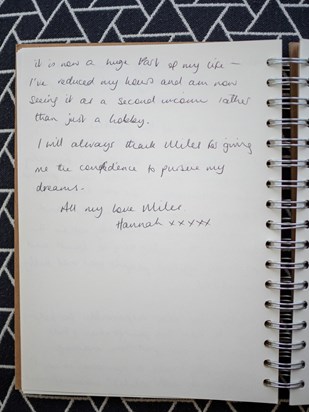 it is now a huge part of my life –
I've reduced my hours and am now
seeing it as a second income rather
than just a hobby.
I will always thank Miles for giving
me the confidence to pursue my
dreams.
All my love Miles
Hannah xxxxx